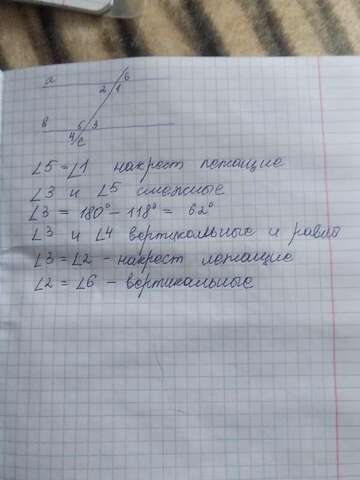 a
6
2 1
в
5 3
4 c
∠5 = ∠1 накрест лежащие
∠3 и ∠5 смежные
∠3 = 180° - 118° = 62°
∠3 и ∠4 вертикальные и равны
∠3 = ∠2 - накрест лежащие
∠2 = ∠6 - вертикальные